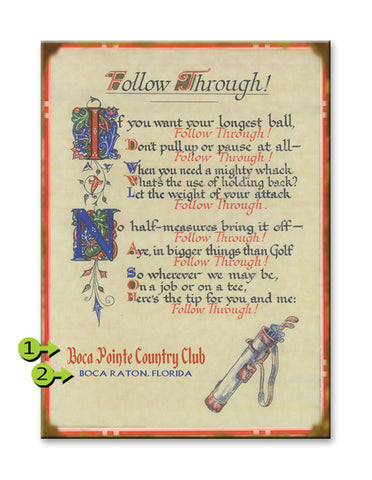 Follow Through!
If you want your longest ball,
Follow Through!
Don't pull up or pause at all—
Follow Through!
When you need a mighty whack
What's the use of holding back?
Let the weight of your attack
Follow Through.
No half-measures bring it off—
Follow Through!
Aye, in bigger things than Golf
Follow Through!
So wherever we may be,
On a job or on a tee,
Here's the tip for you and me:
Follow Through!
1 Boca Pointe Country Club
2 BOCA RATON, FLORIDA